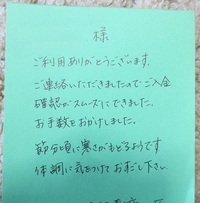 様
ご利用ありがとうございます。
ご連絡いただきましたので、ご入金
確認がスムーズにできました。
お手数をおかけしました。
節分頃に寒さがもどるようです
体調に気をつけてお過ごし下さい。